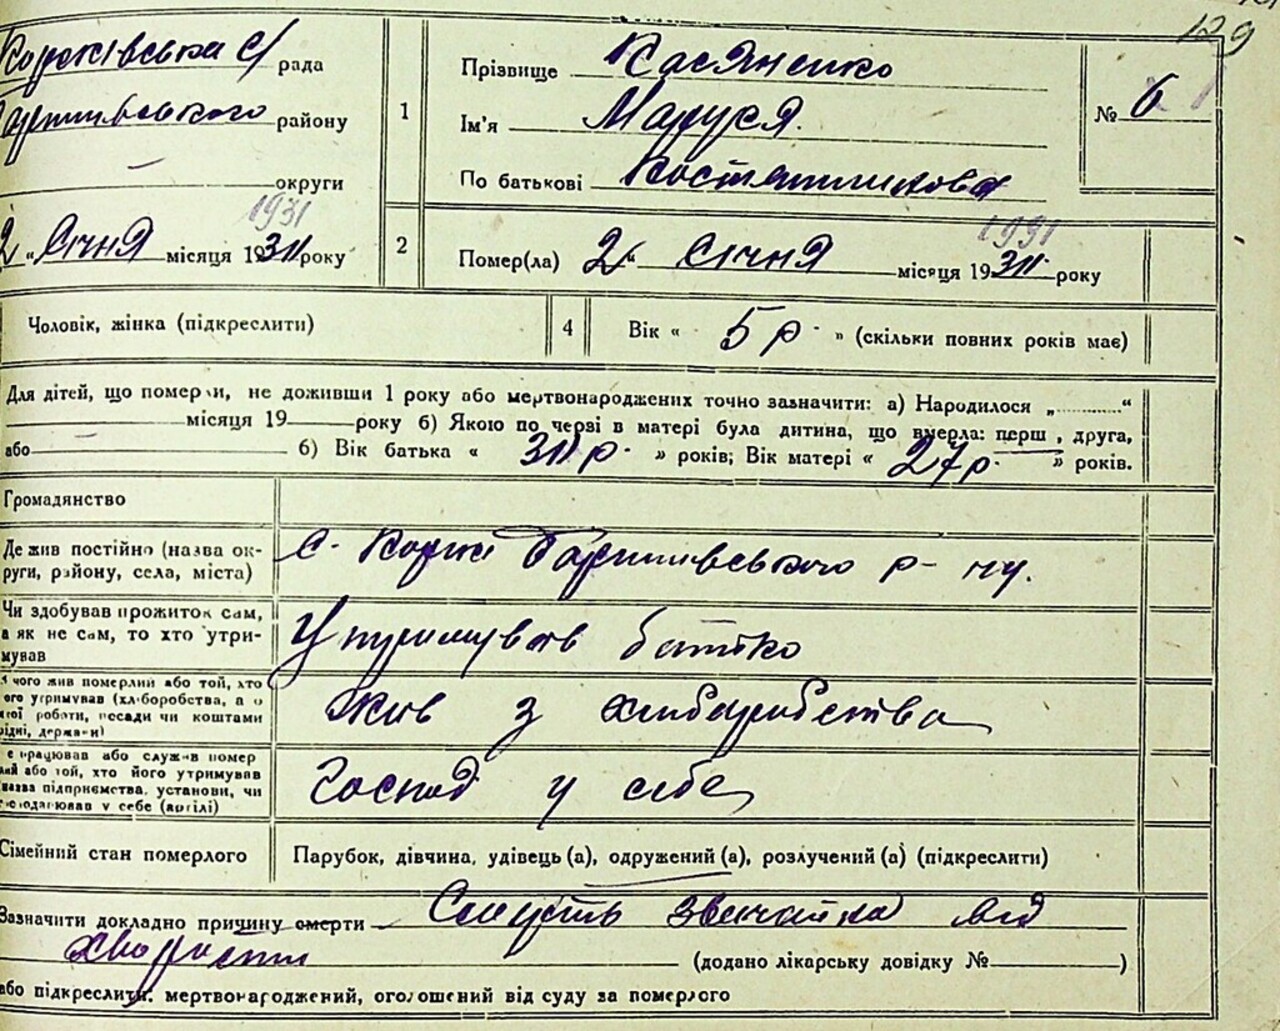 129
Коржівська с/ рада
Баришівського району
округи
1931
2 „ Січня місяця 1931 року
1
Прізвище Касяненко
Ім'я Маруся.
По батькові Костянтинова
№ 6
2
1931
Помер(ла) 2 " Січня місяця 1931 року
Чоловік, жінка (підкреслити)
4
Вік « 5 р. » (скільки повних років має)
Для дітей, що померли, не доживши 1 року або мертвонароджених точно зазначити: а) Народилося „ “
місяця 19 року б) Якою по черзі в матері була дитина, що вмерла: перш , друга,
або б) Вік батька « 31 р. » років; Вік матері « 27 р. » років.
Громадянство
Де жив постійно (назва ок-
руги, району, села, міста)
с. Коржі Баришівського р-ну.
Чи здобував прожиток сам,
а як не сам, то хто утри-
мував
Утримував батько
чого жив померлий або той, хто
його утримував (хліборобства, а о
роботи, посади чи коштами
рідні, держави)
Жив з хліборобства
е працював або служив помер
лий або той, хто його утримував
назва підприємства, установи, чи
господарював у себе (артілі)
Господ у себе
Сімейний стан померлого
Парубок, дівчина, удівець (а), одружений (а), розлучений (а) (підкреслити)
Зазначити докладно причину смерти Смерть звичайна від
хвороби (додано лікарську довідку № )
або підкреслить: мертвонароджений, оголошений від суду за померлого